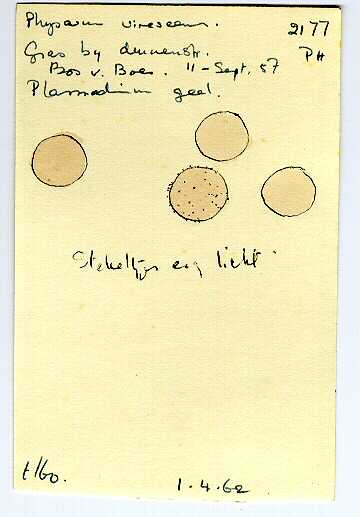 Physarum virescens. 2177
Gras by dennenstr. PH
Bos v. Boes. 11-Sept. 57
Plasmodium geel.
Stekeltjes erg licht
t/60. 1.4.62